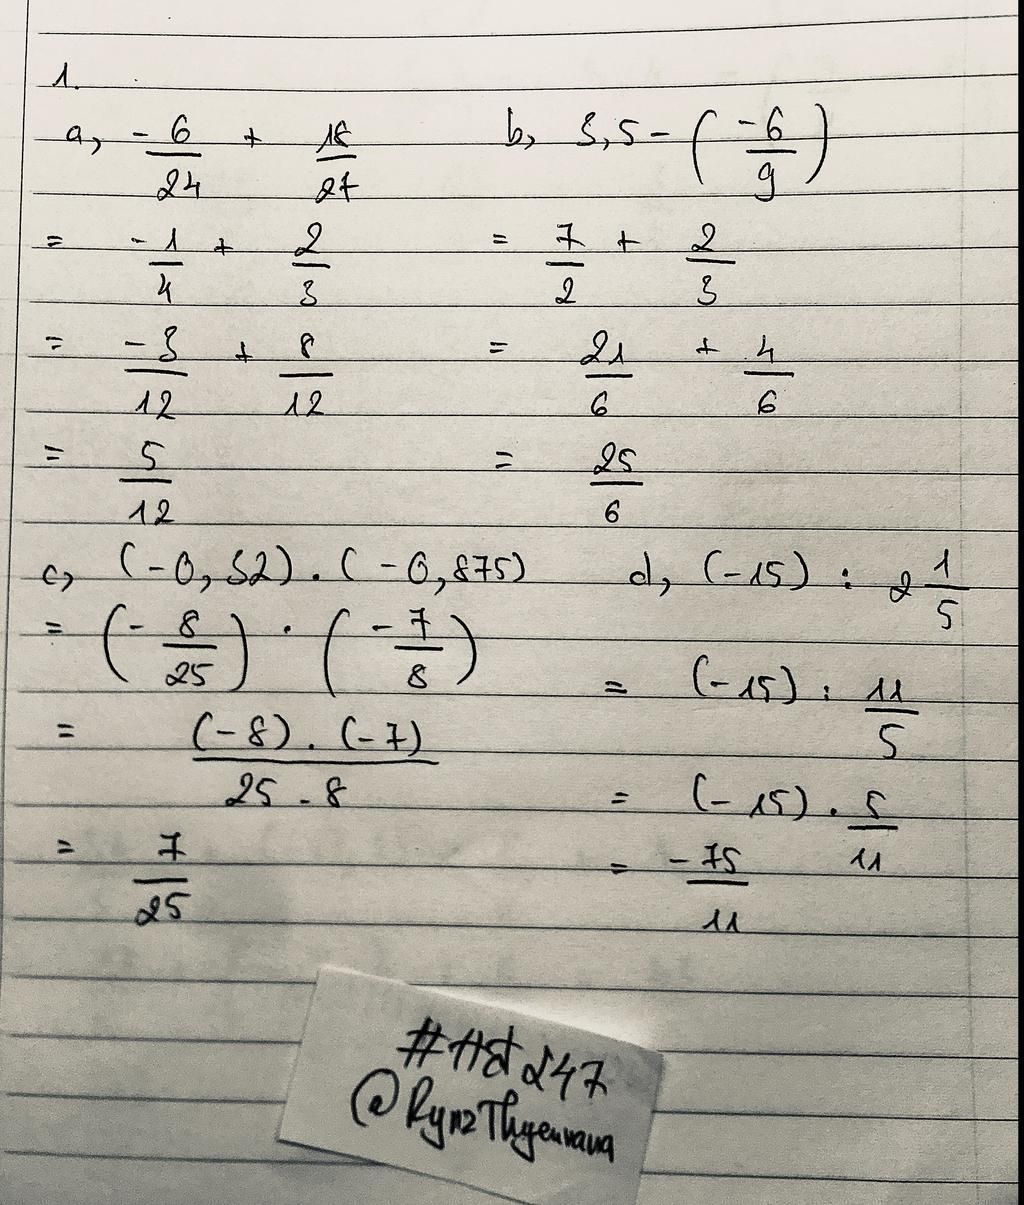 1.
a, -6/24 + 18/27
= -1/4 + 2/3
= -3/12 + 8/12
= 5/12
b, 3,5 - (-6/9)
= 7/2 + 2/3
= 21/6 + 4/6
= 25/6
c, (-0,32) . (-0,875)
= (-8/25) . (-7/8)
= (-8) . (-7)/25 . 8
= 7/25
d, (-15) : 2 1/5
= (-15) : 11/5
= (-15) . 5/11
= -75/11